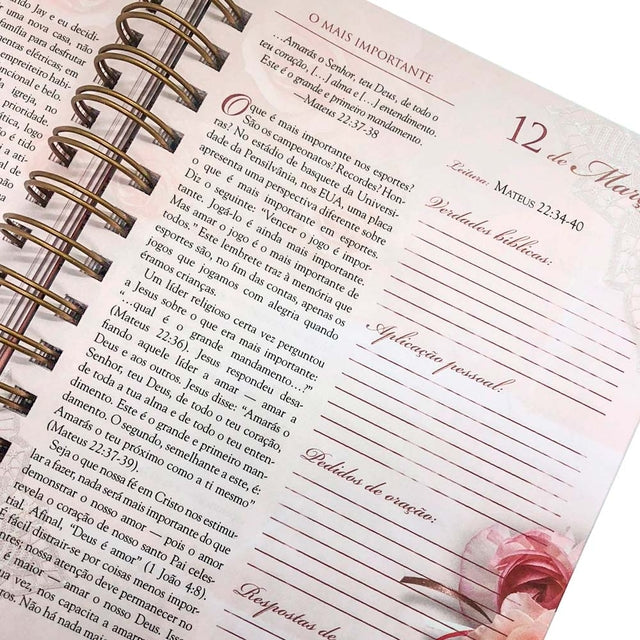 do Jay e eu decidi-
uma nova casa, não
família para desfrutar
mentas elétricas; em
empreiteiro habi-
ncional e belo.
igreja, no
prioridade.
O MAIS IMPORTANTE
...Amarás o Senhor, teu Deus, de todo o
teu coração, [...] alma e [...] entendimento.
Este é o grande e primeiro mandamento.
—Mateus 22:37-38
O que é mais importante nos esportes?
São os campeonatos? Recordes? Hon-
ras? No estádio de basquete da Universi-
dade da Pensilvânia, nos EUA, uma placa
apresenta uma perspectiva diferente sobre
o que é mais importante em esportes.
Diz o seguinte: "Vencer o jogo é impor-
tante. Jogá-lo é ainda mais importante.
Mas amar o jogo é o mais importante de
todos." Este lembrete traz à memória que
esportes são, no fim das contas, apenas os
jogos que jogamos com alegria quando
éramos crianças.
Um líder religioso certa vez perguntou
a Jesus sobre o que era mais importante:
"...qual é o grande mandamento...?"
(Mateus 22:36). Jesus respondeu desa-
fiando aquele líder a amar — amar a
Deus e aos outros. Jesus disse: "Amarás o
Senhor, teu Deus, de todo o teu coração,
de toda a tua alma e de todo o teu enten-
dimento. Este é o grande e primeiro man-
damento. O segundo, semelhante a este, é:
Amarás o teu próximo como a ti mesmo"
(Mateus 22:37-39).
Seja o que nossa fé em Cristo nos estimu-
lar a fazer, nada será mais importante do que
demonstrar o nosso amor — pois o amor
revela o coração de nosso santo Pai celes-
tial. Afinal, "Deus é amor" (1 João 4:8).
É fácil distrair-se por coisas menos impor-
nossa atenção deve permanecer no
é maior — amar o nosso Deus. Isso
vez, nos capacita a amar
os. Não há nada mais
12 de
Leitura: MATEUS 22:34-40
Verdades bíblicas:
Aplicação pessoal:
Pedidos de oração:
Respostas de